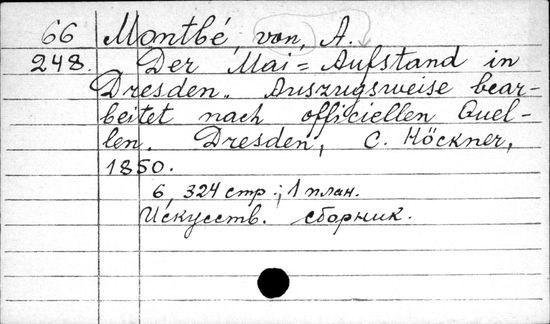 66 Montbé, von, A.
248. Der Mai=Aufstand in
Dresden. Auszugsweise bear-
beitet nach officiellen Quel-
len. Dresden, C. Höckner,
1850.
6, 324 стр.; 1 план.
Искусств. сборник.